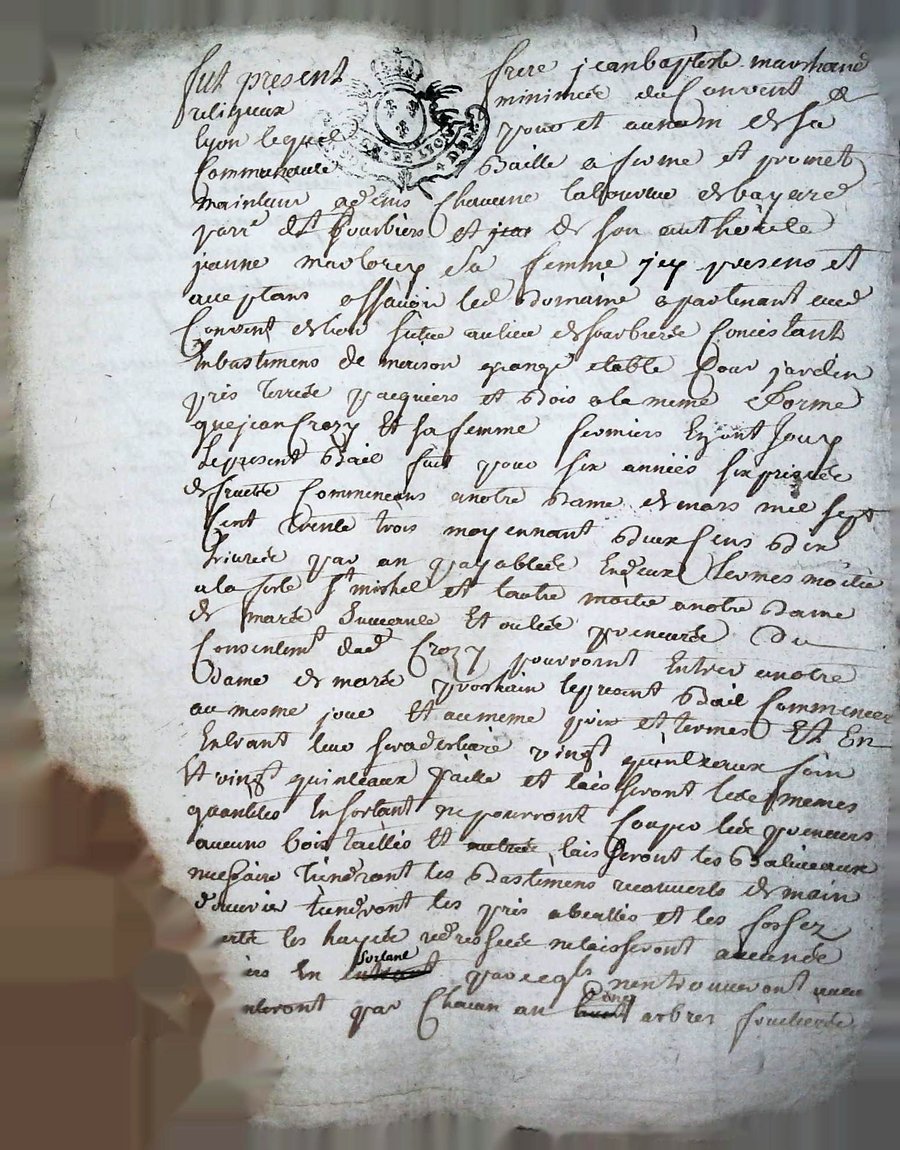 fut present frere jeanbaptiste marchand
religieux minimes du Convent de
lyon lequel pour et aunom de sa
Communauté Baille a ferme et promet
maintenir a Chavanne laboureur de bayard
parr et Sourbiers et de son authorite
janne sa femme jcy presens et
acceptans assavoir led Domaine apartenant aud
Convent de lion situé aulieu de Concistant
Enbastimens de maison grange etable Cour jardin
prés terres pacquiers et Bois ala meme forme
quejean Crozy Et safemme fermiers Enont Jouy
Lepresent Bail fait pour six années six prises
de fruits Commencans anotre Dame de mars mil sept
Cent trente trois moyennant Deux Cens Dix
livres par an payables Endeux termes moitie
ala feste St michel et lautre moitie anotre Dame
de mars Suivante Et ou les preneurs Du
Consentemt dud Crozy pourroint Entrer anotre
Dame de mars prochain lepresent Bail Commencera
au mesme jour Et aumeme prix et termes Et En
Entrant leur sera vingt quinteaux foin
Et vingt quinteaux paille et laisseront lesd memes
quantités Ensortant ne pourront Couper lesd preneurs
aucuns bois taillés Et laisseront les Baliveaux
necessaire tiendront les Bastimens recouverts de main
douvrier tiendront les prés et les fossez
les hayes redressées nelaisseront aucunes
En sortant parceqls nentrouveront
par Chacun an Cinq arbres